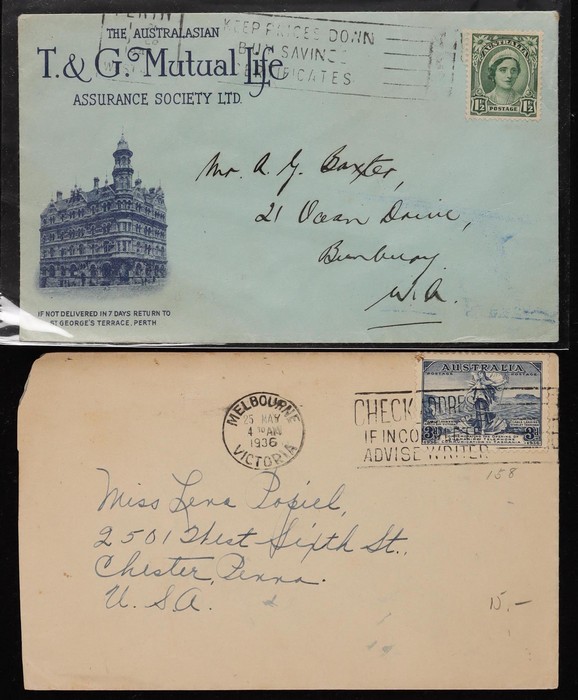 PERTH
KEEP PRICES DOWN
BUY SAVINGS
CERTIFICATES
THE AUSTRALASIAN
T. & G. Mutual life
ASSURANCE SOCIETY LTD.
AUSTRALIA
1½ 1½
POSTAGE
Mr. A. G. Baxter,
21 Ocean Drive,
Bunbury
W.A.
IF NOT DELIVERED IN 7 DAYS RETURN TO
ST GEORGE'S TERRACE, PERTH
AUSTRALIA
POSTAGE POSTAGE
3D 3D
MELBOURNE
25 MAY
4 AM
1936
VICTORIA
CHECK ADDRESS
IF INCOMPLETE
ADVISE WRITER
158
Miss Lena Popiel,
2501 West Sixth St.,
Chester, Penna.
U.S.A.
15.-